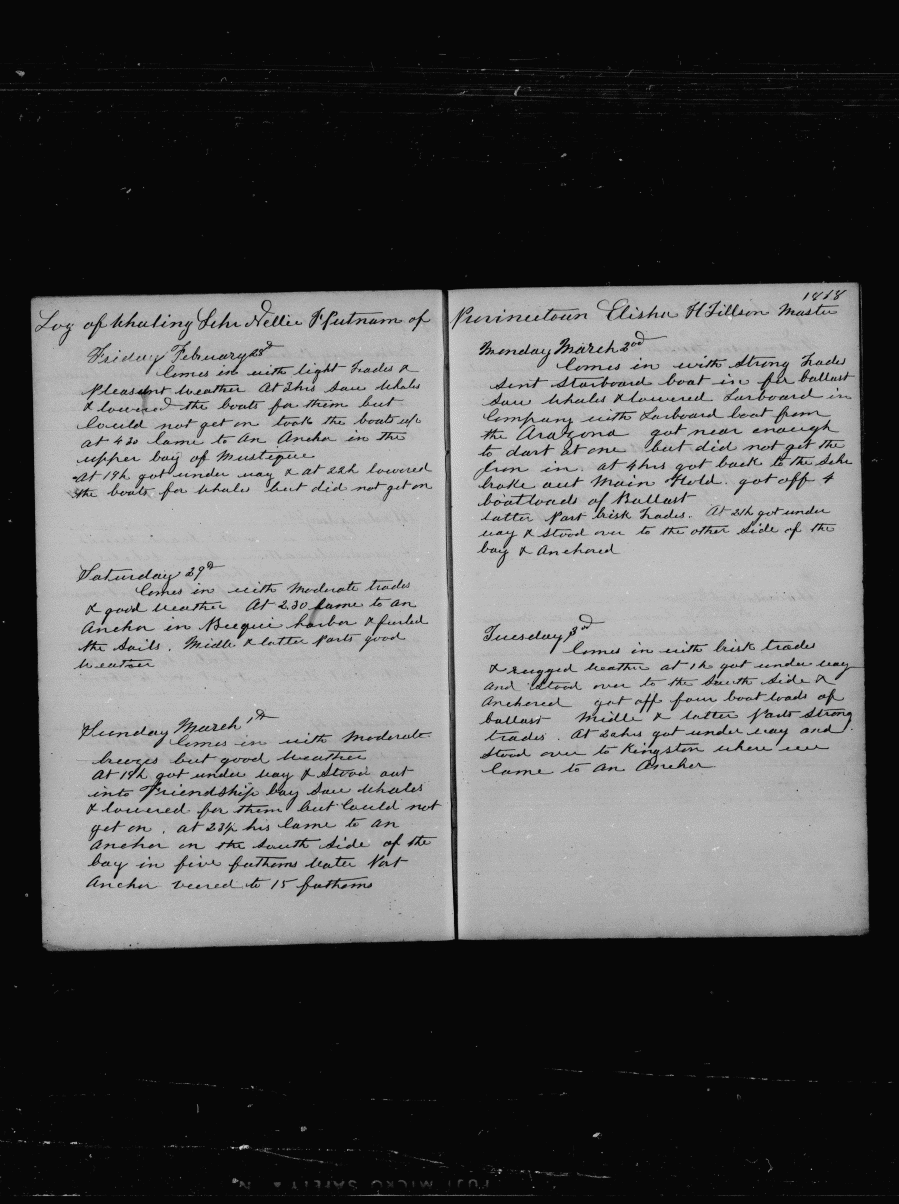 Log of Whaling Schr Nellie S Putnam of
Friday February 28th
Comes in with light trades &
Pleasant weather At 2hrs saw whales
& lowered the boats for them but
Could not get on took the boats up
at 430 Came to An Anchor in the
upper bay of Mustique
At 19h got under way & at 22h lowered
the boats for whales but did not get on
Saturday 29th
Comes in with Moderate trades
& good weather At 2.30 Came to An
Anchor in Becqui harbor & furled
the Sails. Middle & latter Parts good
weather
Sunday March 1st
Comes in with Moderate
breezes but good Weather
At 19h got under way & Stood out
into Friendship bay Saw whales
& lowered for them but Could not
get on. at 23½ hrs Came to an
Anchor on the South Side of the
bay in five fathoms Water Port
Anchor veered to 15 fathoms
1868
Provincetown Elisha H Tillson Master
Monday March 2nd
Comes in with Strong trades
Sent Starboard boat in for ballast
Saw whales & lowered Larboard in
Company with Larboard boat from
the Arazona got near enough
to dart at one but did not get the
Iron in. at 4hrs got back to the Schr
broke out Main Hold. got off 4
boatloads of Ballast
latter Part brisk trades. At 21h got under
way & Stood over to the other Side of the
bay & Anchored
Tuesday 3rd
Comes in with brisk trades
& rugged weather at 1h got under way
and Stood over to the South Side &
Anchored got off four boat loads of
ballast Midle & latter Parts Strong
trades. At 20hrs got under way and
Stood over to Kingston where we
Came to An Ancher